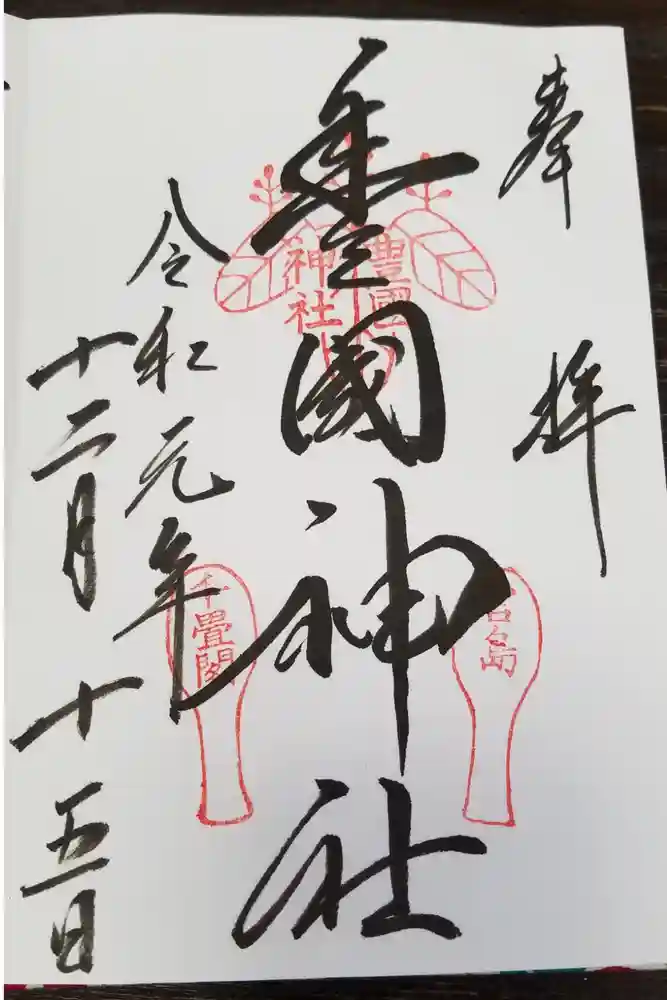 奉拝
豊國神社
令和元年
十二月十五日
豊國
神社
宮島
千畳閣